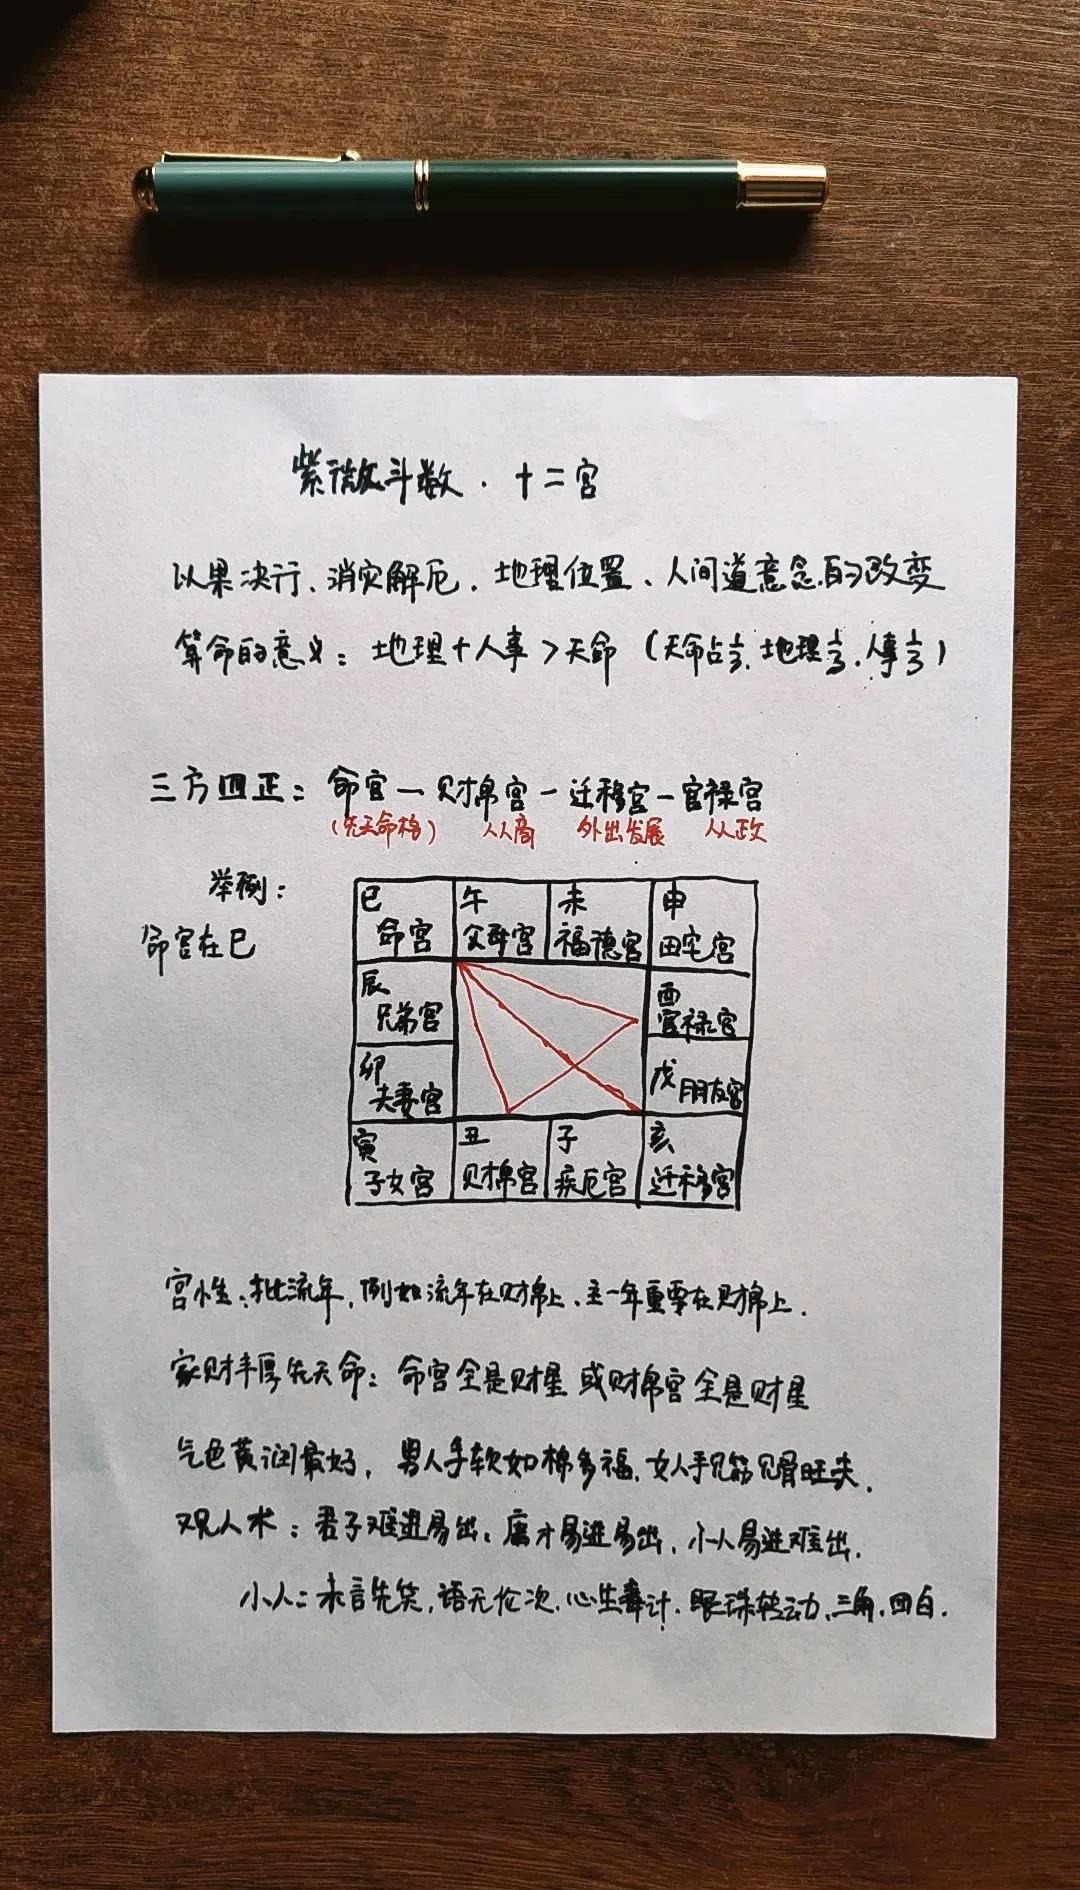 紫微斗数.十二宫
以果决行、消灾解厄.地理位置、人间道意念的改变
算命的意义:地理+人事>天命(天命占⅓,地理⅓,人事⅓)
三方四正:命宫—财帛宫-迁移宫-官禄宫
(先天命格) 从商 外出发展 从政
举例:
命宫在巳
巳 午 未 申
命宫 父母宫 福德宫 田宅宫
辰 酉
兄弟宫 官禄宫
卯 戌
夫妻宫 朋友宫
寅 丑 子 亥
子女宫 财棉宫 疾厄宫 迁移宫
宫性:批流年,例如流年在财帛上、主一年重要在财帛上.
家财丰厚先天命:命宫全是财星 或财帛宫全是财星
气色黄润最好,男人手软如棉多福,女人手见筋见骨旺夫.
观人术:君子难进易出、庸才易进易出,小人易进难出.
小人:未言先笑,语无伦次,心生毒计.眼珠转动,三角,四白.